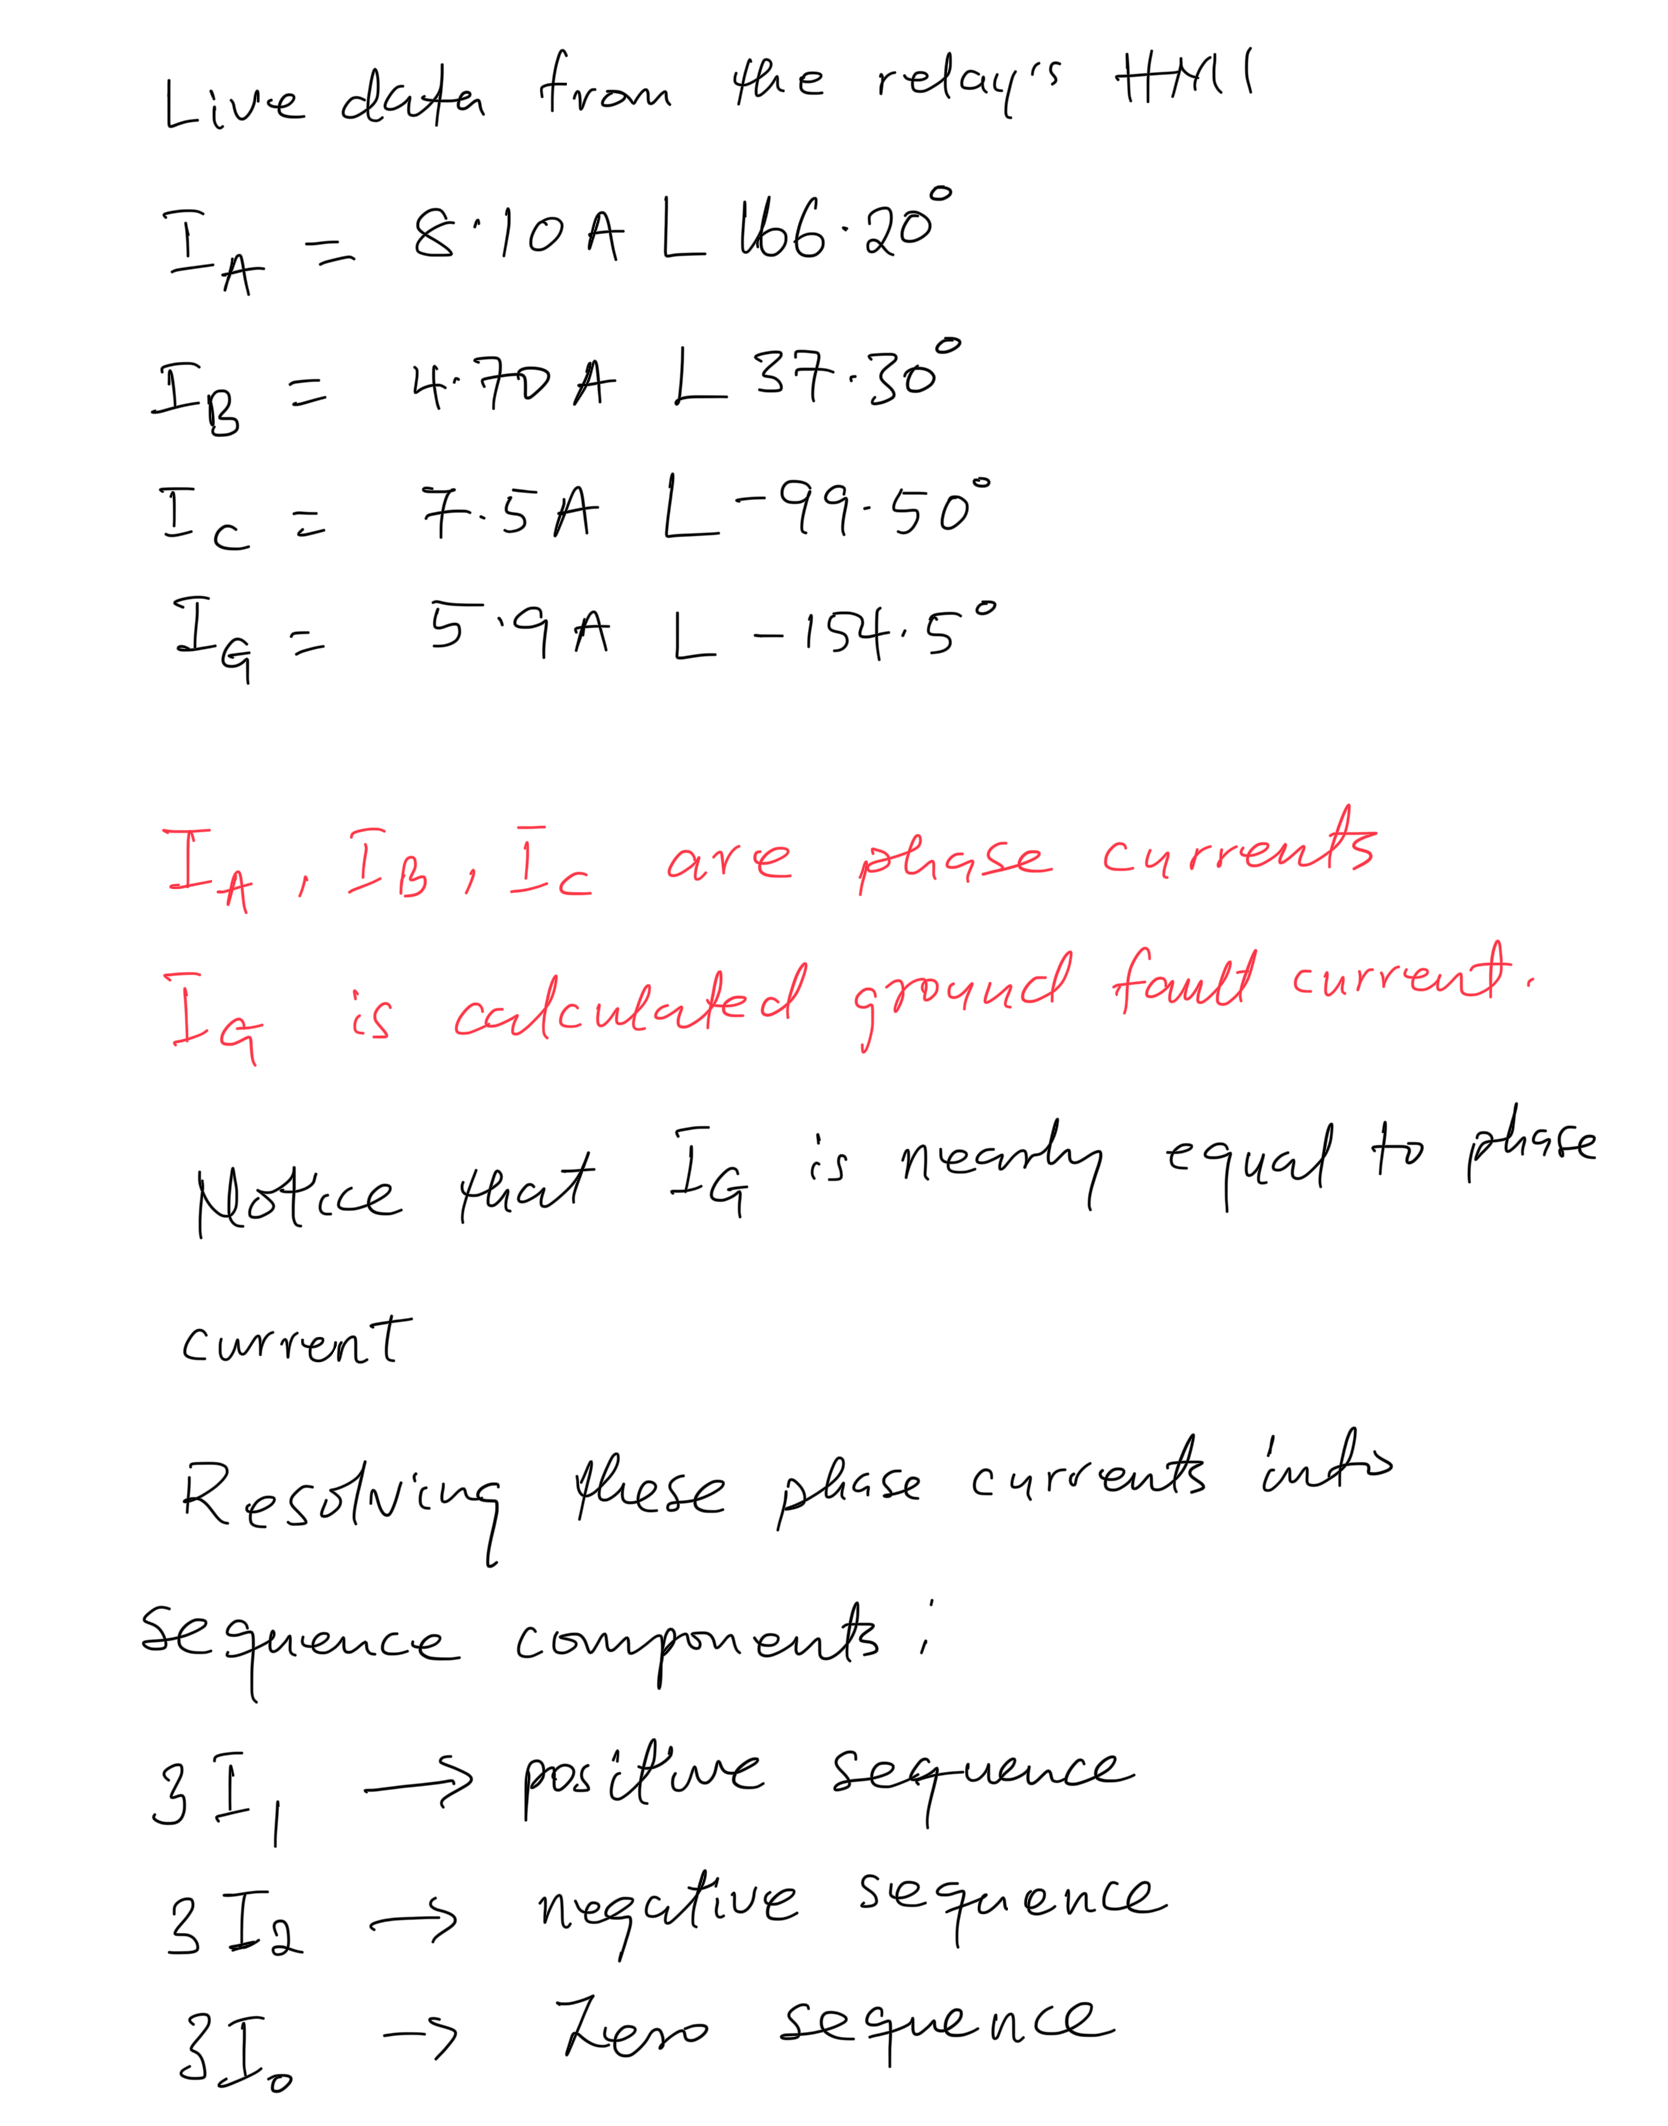 Live data from the relay's HMI
I_A = 8.10A ∠ 166.20°
I_B = 4.70A ∠ 37.30°
I_C = 7.5A ∠ -99.50°
I_G = 5.9A ∠ -154.5°
I_A, I_B, I_C are phase currents
I_G is calculated ground fault current.
Notice that I_G is nearly equal to phase
current
Resolving these phase currents into
sequence components:
3I_1 → positive sequence
3I_2 → negative sequence
3I_0 → Zero sequence